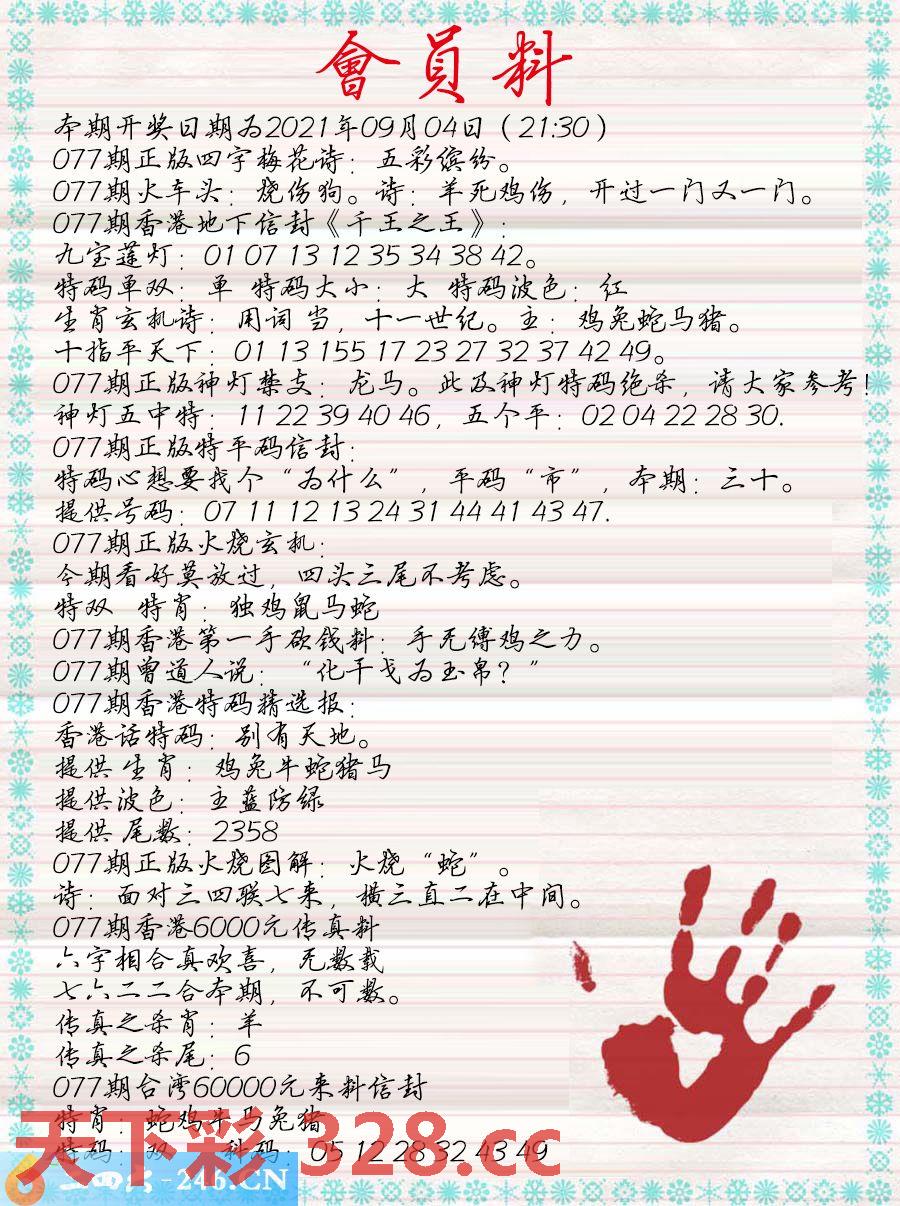 會員料
本期开奖日期为2021年09月04日（21:30）
077期正版四字梅花诗：五彩缤纷。
077期火车头：烧伤狗。诗：羊死鸡伤，开过一门又一门。
077期香港地下信封《千王之王》：
九宝莲灯：01 07 13 12 35 34 38 42。
特码单双：单 特码大小：大 特码波色：红
生肖玄机诗：用词 当，十一世纪。主：鸡兔蛇马猪。
十指平天下：01 13 155 17 23 27 32 37 42 49。
077期正版神灯禁支：龙马。此及神灯特码绝杀，请大家参考！
神灯五中特：11 22 39 40 46，五个平：02 04 22 28 30.
077期正版特平码信封：
特码心想要找个“为什么”，平码“市”，本期：三十。
提供号码：07 11 12 13 24 31 44 41 43 47.
077期正版火烧玄机：
今期看好莫放过，四头三尾不考虑。
特双 特肖：独鸡鼠马蛇
077期香港第一手欲钱料：手无缚鸡之力。
077期曾道人说：“化干戈为玉帛？”
077期香港特码精选报：
香港话特码：别有天地。
提供 生肖：鸡兔牛蛇猪马
提供波色：主蓝防绿
提供 尾数：2358
077期正版火烧图解：火烧“蛇”。
诗：面对三四联七来，横三直二在中间。
077期香港6000元传真料
六字相合真欢喜，无数载
七六二二合本期，不可数。
传真之杀肖：羊
传真之杀尾：6
077期台湾60000元来料信封
特肖：蛇鸡牛马兔猪
特码：双 科码：05 12 28 32 43 49
天下彩 328.cc
二四六-246.CN